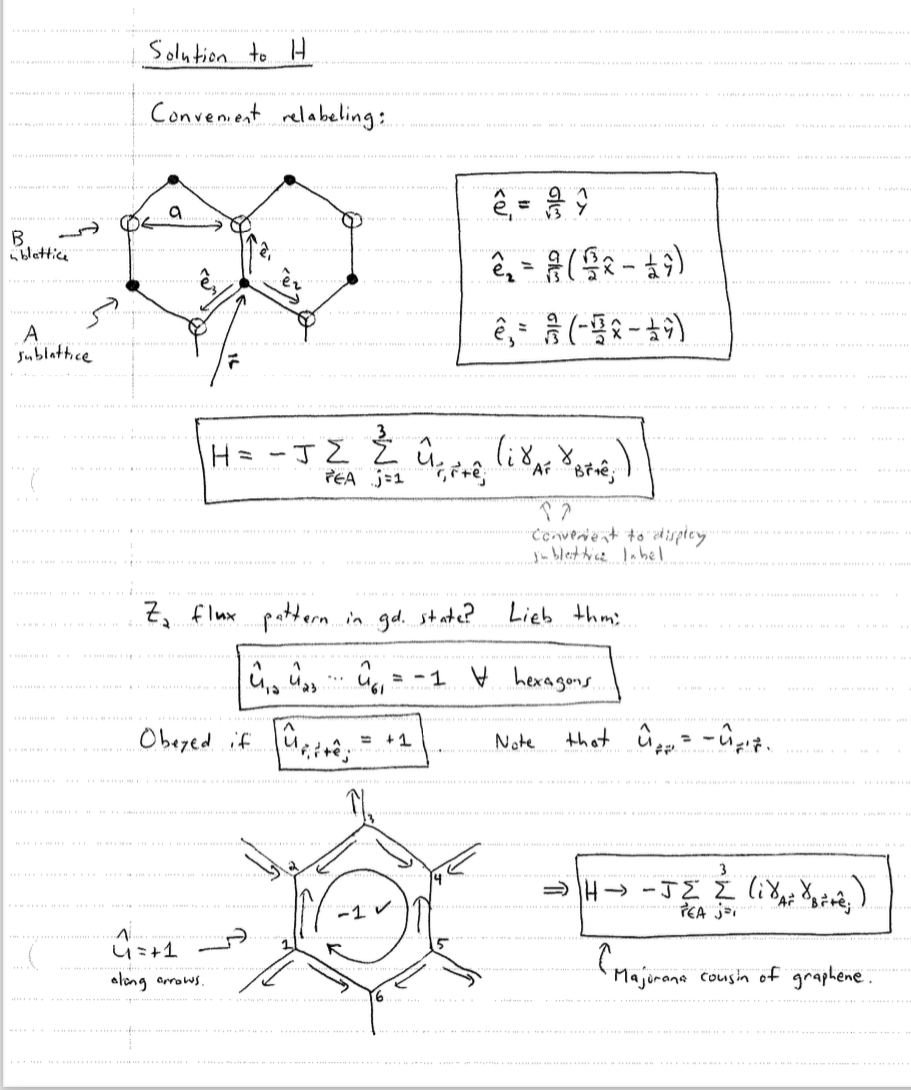 Solution to H
Convenient relabeling:
a
B
sublattice
ê₁
ê₃ ê₂
A
sublattice
r⃗
ê₁ = a/√3 ŷ
ê₂ = a/√3 (√3/2 x̂ - 1/2 ŷ)
ê₃ = a/√3 (-√3/2 x̂ - 1/2 ŷ)
H = - J Σ_{r⃗∈A} Σ_{j=1}^{3} û_{r⃗,r⃗+ê_j} (iγ_{Ar⃗} γ_{Br⃗+ê_j})
Convenient to display
sublattice label
Z₂ flux pattern in gd. state? Lieb thm:
û₁₂ û₂₃ ... û₆₁ = -1 ∀ hexagons
Obeyed if û_{r⃗,r⃗+ê_j} = +1 . Note that û_{r⃗r⃗'} = -û_{r⃗'r⃗}.
3
2
4
-1 ✓
1
5
6
û=+1
along arrows.
⇒ H → -J Σ_{r⃗∈A} Σ_{j=1}^{3} (iγ_{Ar⃗} γ_{Br⃗+ê_j})
Majorana cousin of graphene.